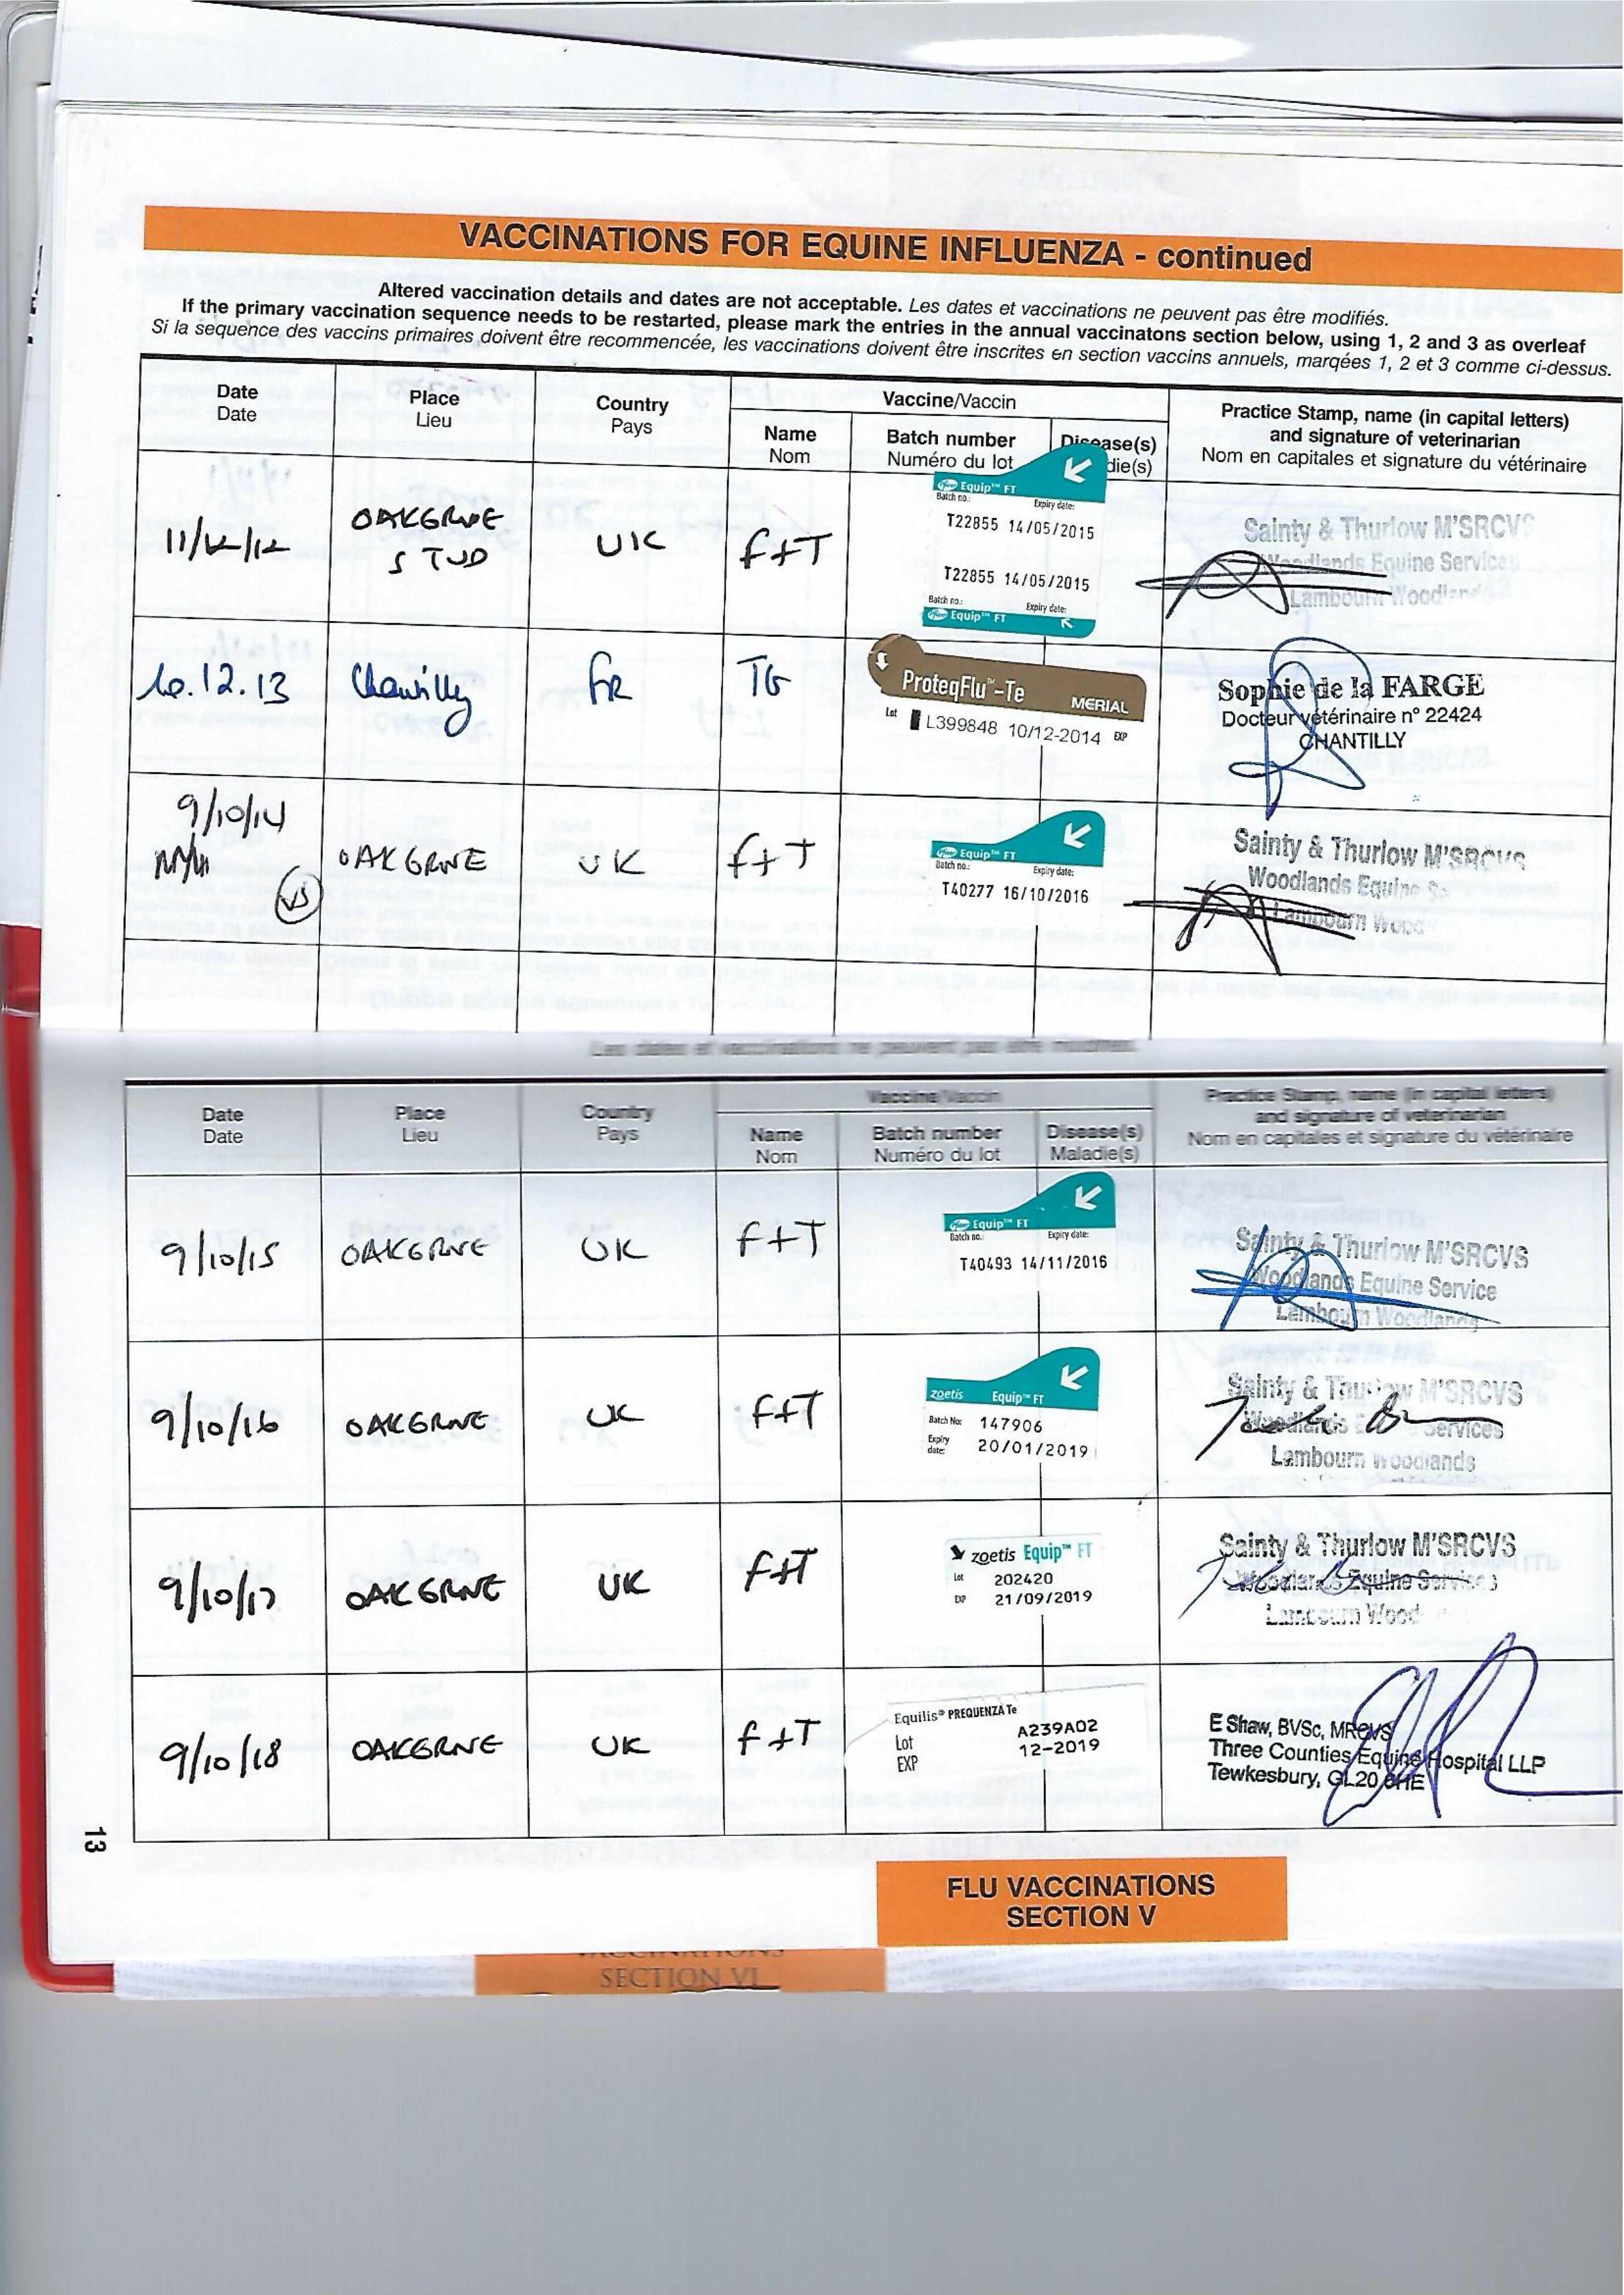 VACCINATIONS FOR EQUINE INFLUENZA - continued
Altered vaccination details and dates are not acceptable. Les dates et vaccinations ne peuvent pas être modifiés.
If the primary vaccination sequence needs to be restarted, please mark the entries in the annual vaccinatons section below, using 1, 2 and 3 as overleaf
Si la sequence des vaccins primaires doivent être recommencée, les vaccinations doivent être inscrites en section vaccins annuels, marqées 1, 2 et 3 comme ci-dessus.
Date
Date
Place
Lieu
Country
Pays
Vaccine/Vaccin
Name
Nom
Batch number
Numéro du lot
Disease(s)
die(s)
Practice Stamp, name (in capital letters)
and signature of veterinarian
Nom en capitales et signature du vétérinaire
11/12/12
OAKGROVE
STUD
UK
F+T
Equip™ FT
Batch no.: Expiry date:
T22855 14/05/2015
T22855 14/05/2015
Batch no.: Expiry date:
Equip™ FT
Sainty & Thurlow M'SRCVS
Woodlands Equine Services
Lambourn Woodlands
10.12.13
Chantilly
FR
TG
ProteqFlu™-Te
MERIAL
Lot L399848 10/12-2014 EXP
Sophie de la FARGE
Docteur vétérinaire n° 22424
CHANTILLY
9/10/14
VS
OAKGROVE
UK
F+T
Equip™ FT
Batch no.: Expiry date:
T40277 16/10/2016
Sainty & Thurlow M'SRCVS
Woodlands Equine Se
Lambourn Wood
Les dates et vaccinations ne peuvent pas être modifiés.
Date
Date
Place
Lieu
Country
Pays
Vaccine/Vaccin
Name
Nom
Batch number
Numéro du lot
Disease(s)
Maladie(s)
Practice Stamp, name (in capital letters)
and signature of veterinarian
Nom en capitales et signature du vétérinaire
9/10/15
OAKGROVE
UK
F+T
Equip™ FT
Batch no.: Expiry date:
T40493 14/11/2016
Sainty & Thurlow M'SRCVS
Woodlands Equine Service
Lambourn Woodlands
9/10/16
OAKGROVE
UK
F+T
zoetis Equip™ FT
Batch No: 147906
Expiry
date: 20/01/2019
Sainty & Thurlow M'SRCVS
Woodlands E Services
Lambourn Woodlands
9/10/17
OAKGROVE
UK
F+T
zoetis Equip™ FT
Lot 202420
EXP 21/09/2019
Sainty & Thurlow M'SRCVS
Woodlands Equine Services
Lambourn Wood
9/10/18
OAKGROVE
UK
F+T
Equilis® PREQUENZA Te
Lot A239A02
EXP 12-2019
E Shaw, BVSc, MRCVS
Three Counties Equine Hospital LLP
Tewkesbury, GL20 8HE
13
FLU VACCINATIONS
SECTION V
VACCINATIONS
SECTION VI